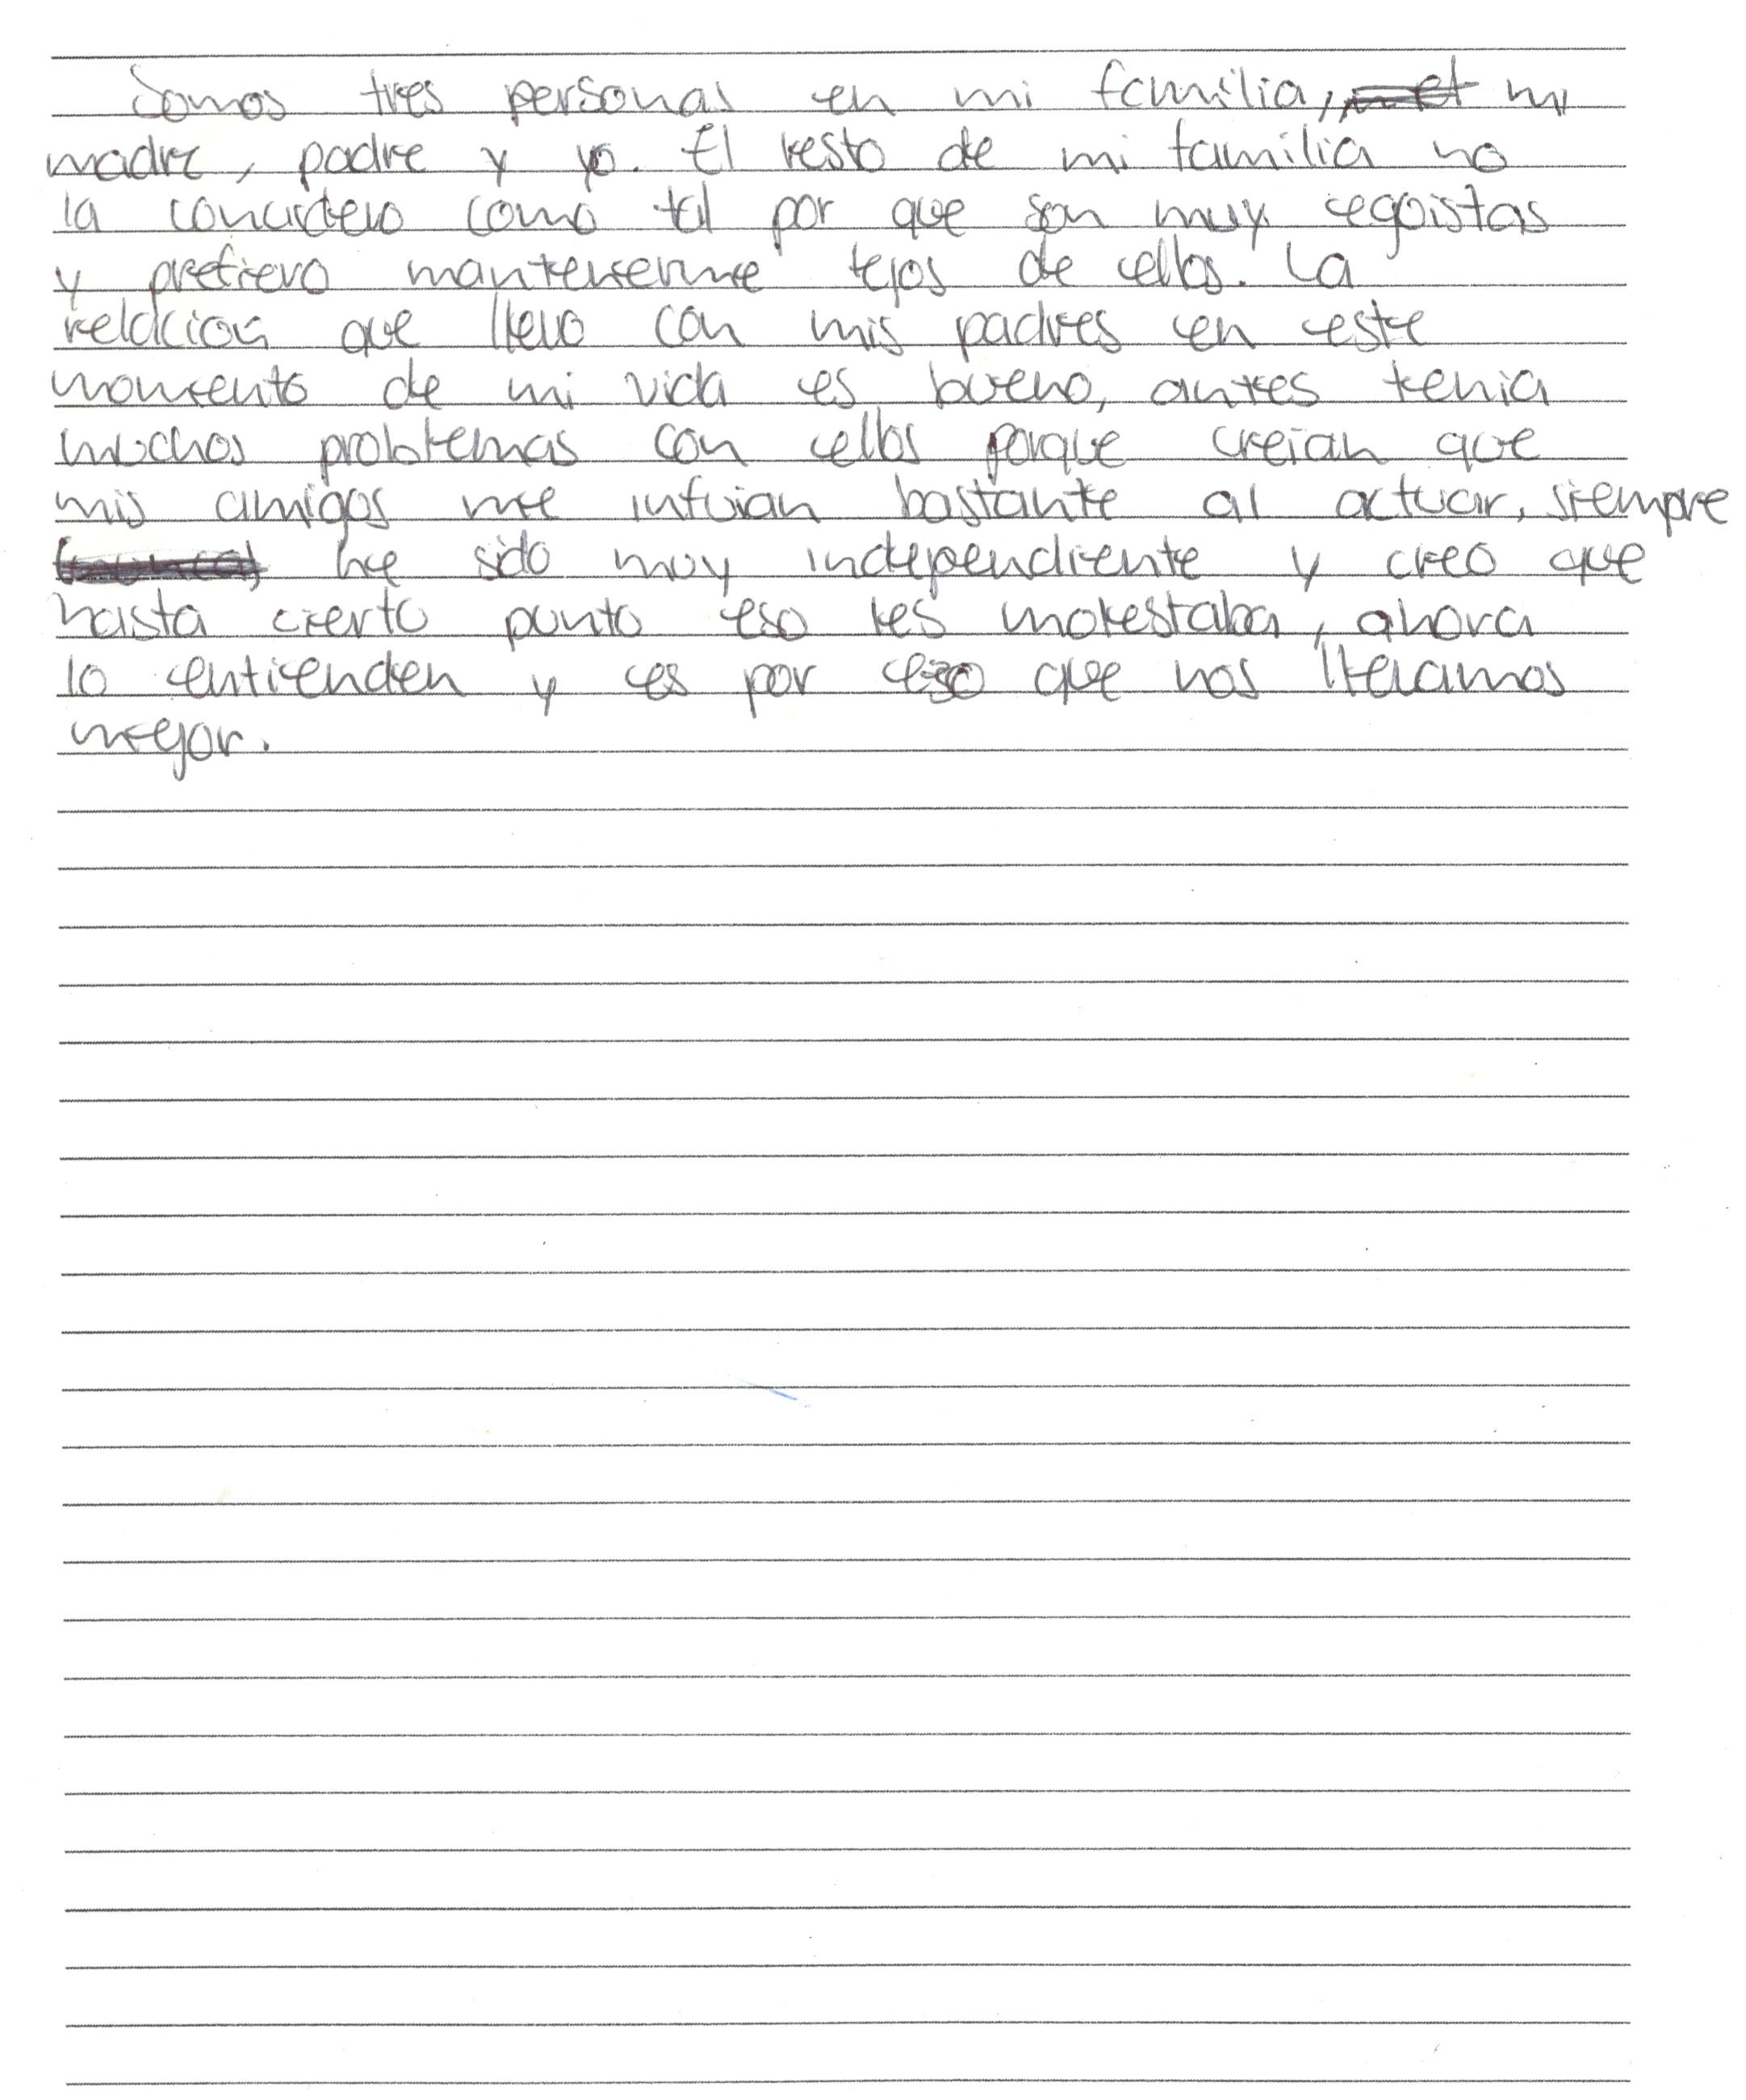 Somos tres personas en mi familia, mi
madre, padre y yo. El resto de mi familia no
la concidero como tal por que son muy egoistas
y prefiero mantenerme lejos de ellos. La
relacion que llevo con mis padres en este
momento de mi vida es bueno, antes tenia
muchos problemas con ellos porque creian que
mis amigos me infuian bastante al actuar, siempre
he sido muy independiente y creo que
hasta cierto punto eso les molestaba, ahora
lo entienden y es por eso que nos llevamos
mejor.